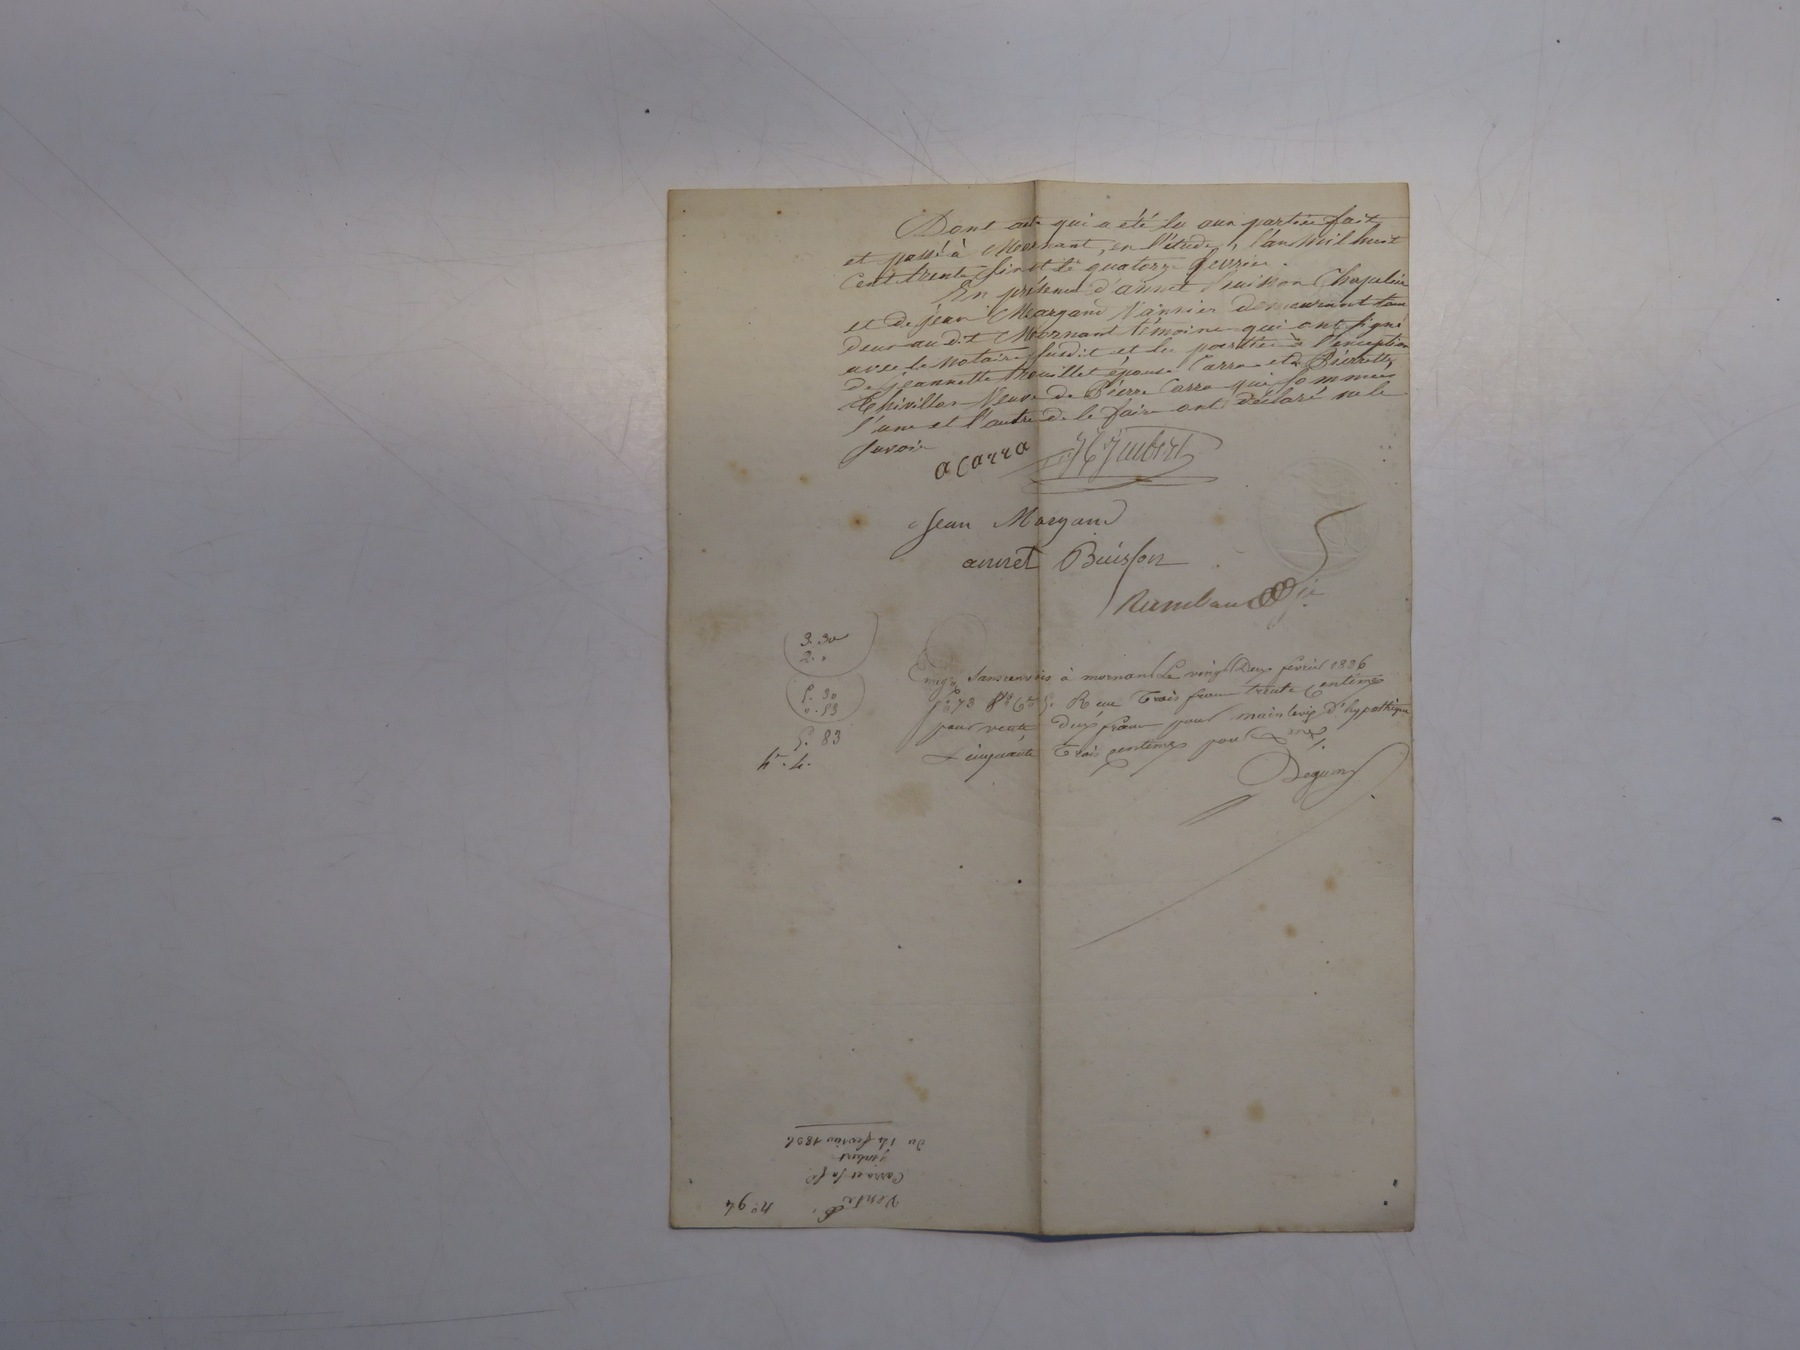 Dont acte qui a été lu aux parties fait
et passé à Mornant, en l'étude, l'an mil huit
Cent trente six et le quatorze fevrier.
En présence d'annet Buisson Chapelier
et de jean Margand Vannier demeurant tous
deux au dit Mornant témoins qui ont signé
avec le notaire susdit et les parties à l'exception
de jeannette trouillet épouse Carra et de Pierrette
Thivillon Veuve de Pierre Carra qui sommées
l'une et l'autre de le faire ont déclaré ne le
savoir
a Carra
Jubert
Jean Margand
annet Buisson
Rambaud
3. 30
2. "
5. 30
". 53
5. 83
Enreg. sans renvois à mornant Le vingt Deux fevrier 1836
f° 73 Reçu Trois francs trente Centimes
pour vente deux francs pour mainlevée d'hypothèque
& cinquante Trois centimes pour
Deguin
n° 94
Vente
Carra et sa fe
Jubert
du 14 fevrier 1836